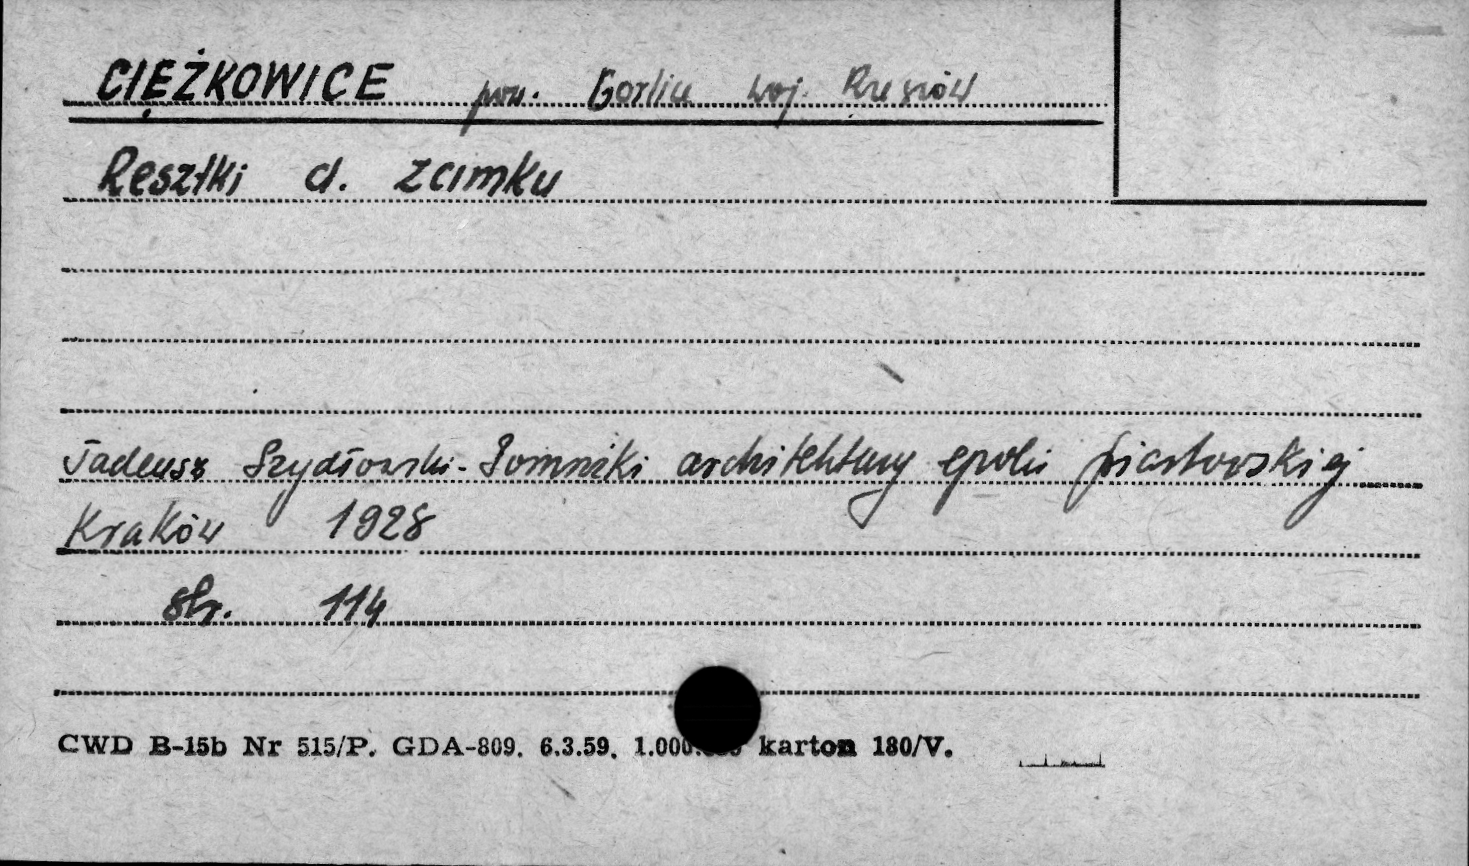 CIĘŻKOWICE pow. Gorlice woj. Rzeszów
Resztki d. zamku
Tadeusz Szydłowski - Pomniki architektury epoki piastowskiej
Kraków 1928
str. 114
CWD B-15b Nr 515/P. GDA-809. 6.3.59. 1.000.000 karton 180/V.